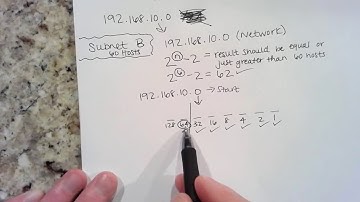 192.168.10.0
Subnet B
60 Hosts
192.168.10.0 (Network)
2^n - 2 = result should be equal or just greater than 60 hosts.
2^6 - 2 = 62 ✓
192.168.10.0 → Start
128 64 32 16 8 4 2 1